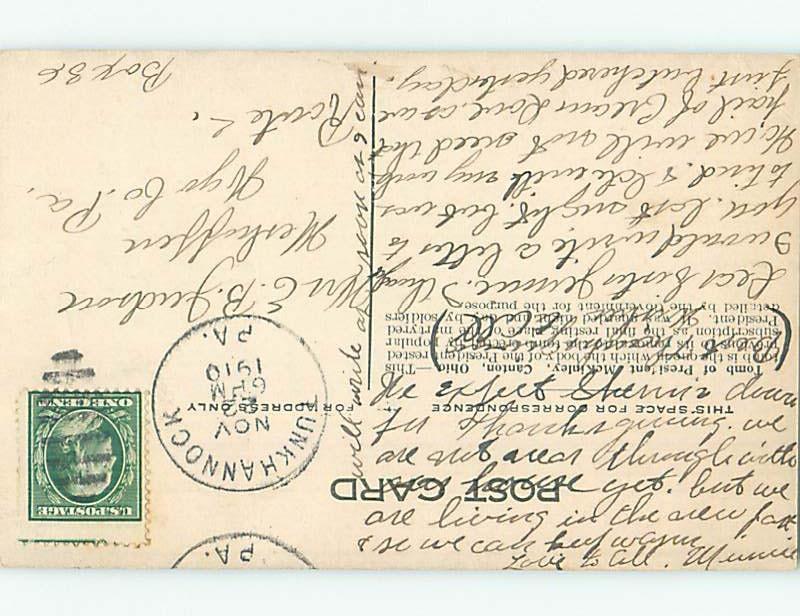 POST CARD
THIS SPACE FOR CORRESPONDENCE
FOR ADDRESS ONLY
U.S. POSTAGE
ONE CENT
TUNKHANNOCK
NOV
6 PM
1910
PA.
PA.
Tomb of President McKinley, Canton, Ohio.—This
tomb is the one in which the body of the President rested
previous to its removal to the tomb erected by popular
subscription as the final resting place of the martyred
President. It was guarded night and day by soldiers
detailed by the Government for the purpose.
Dear Sister Jennie. I thought
I would write a letter to
you last night but was
to tired. & with my work
No, we will not need that
pail of Cream as we
just butchered yesterday.
will write as soon as I can
Mrs E. B. Judson
Meshoppen
Wyo Co. Pa.
Route
Box 36
We expect Sherm down
for Thanksgiving. we
are not near through with
house yet. but we
are living in the new part
& so we can keep warm
Love to all. Minnie